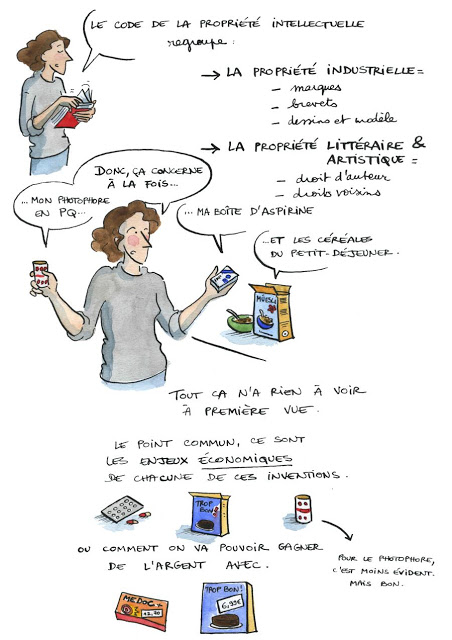 LE CODE DE LA PROPRIÉTÉ INTELLECTUELLE
regroupe :
→ LA PROPRIÉTÉ INDUSTRIELLE =
– marques
– brevets
– dessins et modèle
→ LA PROPRIÉTÉ LITTÉRAIRE &
ARTISTIQUE =
– droit d'auteur
– droits voisins
DONC, ÇA CONCERNE
À LA FOIS...
...MON PHOTOPHORE
EN PQ...
... MA BOÎTE D'ASPIRINE
...ET LES CÉRÉALES
DU PETIT-DÉJEUNER.
MUESLI
TOUT ÇA N'A RIEN À VOIR
À PREMIÈRE VUE.
LE POINT COMMUN, CE SONT
LES ENJEUX ÉCONOMIQUES
DE CHACUNE DE CES INVENTIONS.
TROP
BON!
OU COMMENT ON VA POUVOIR GAGNER
DE L'ARGENT AVEC.
POUR LE PHOTOPHORE,
C'EST MOINS ÉVIDENT.
MAIS BON.
MEDOC +
12,70
TROP BON!
6,95€